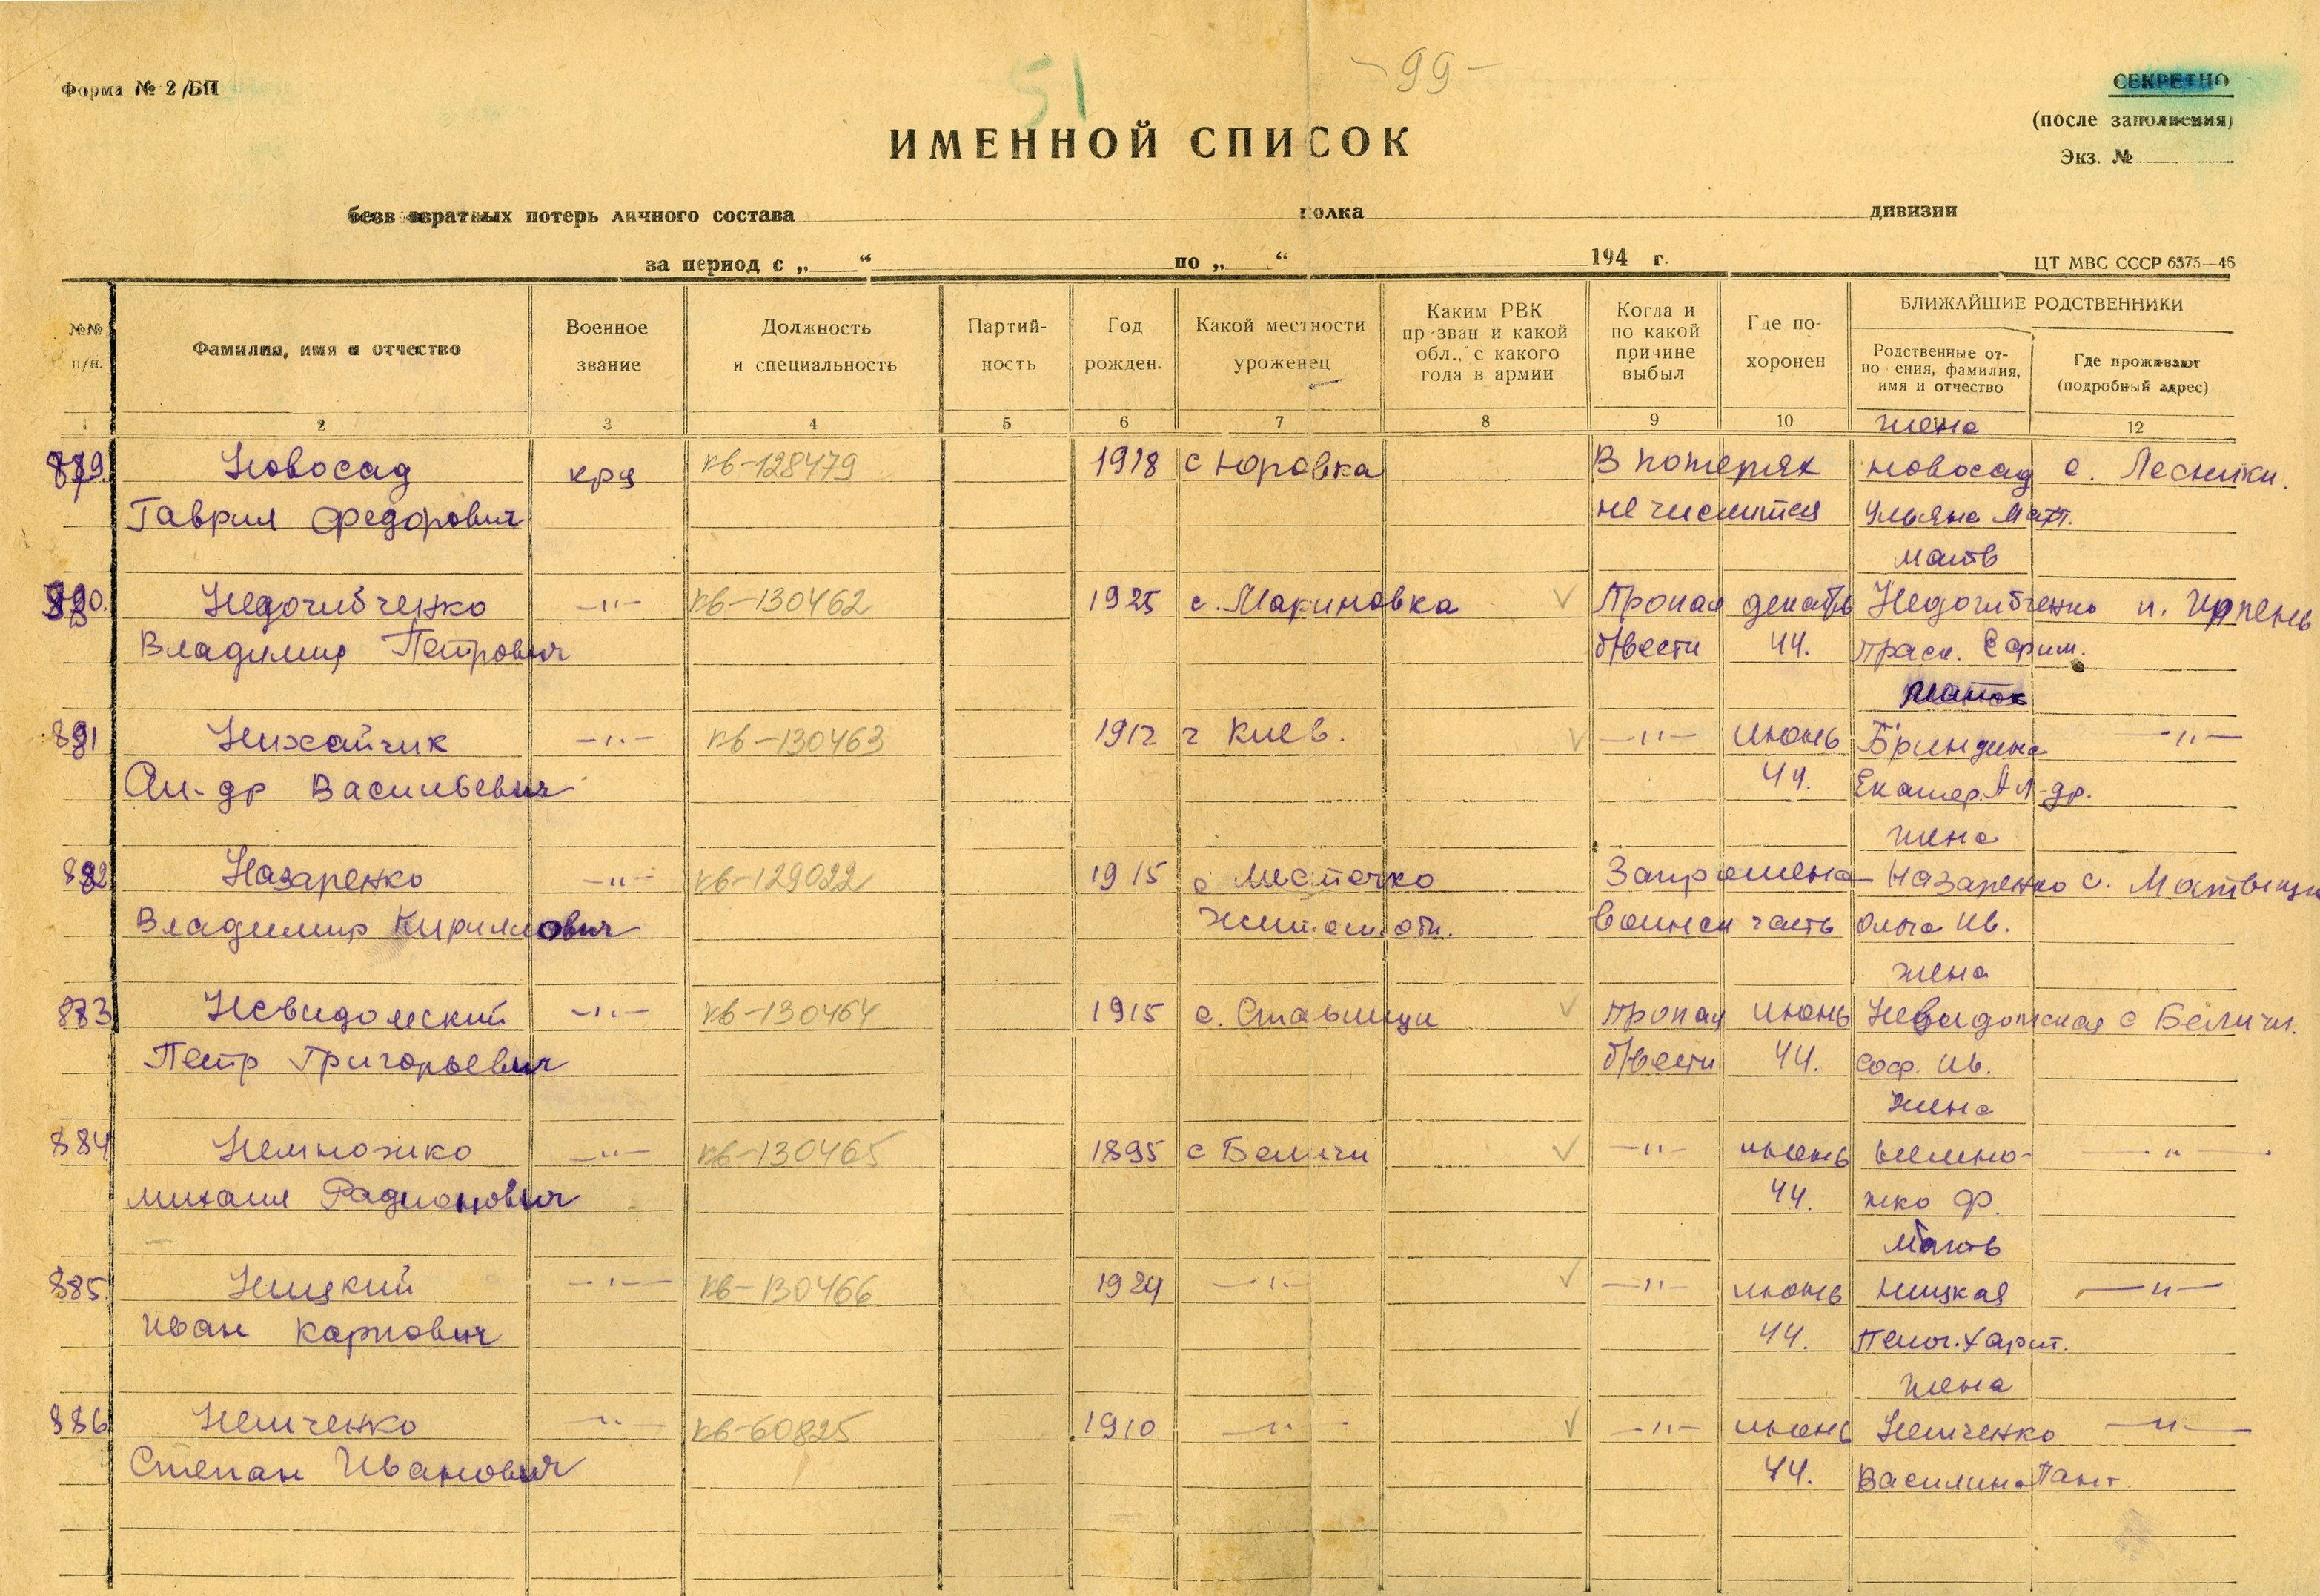 51
- 99 -
Форма № 2/БП
СЕКРЕТНО
(после заполнения)
Экз. №
ИМЕННОЙ СПИСОК
безвозвратных потерь личного состава полка дивизии
за период с „ “ по „ “ 194 г.
ЦТ МВС СССР 6375—46
№№ п/п.
Фамилия, имя и отчество
Военное звание
Должность и специальность
Партий- ность
Год рожден.
Какой местности уроженец
Каким РВК призван и какой обл., с какого года в армии
Когда и по какой причине выбыл
Где по- хоронен
БЛИЖАЙШИЕ РОДСТВЕННИКИ
Родственные от- ношения, фамилия, имя и отчество
Где проживают (подробный адрес)
1 2 3 4 5 6 7 8 9 10 12
жена
879. Новосад кр-ц кв-128479 1918 с Юровка В потерях Новосад с. Лесники.
Гаврил Федорович не числится Ульяна Март.
мать
880. Недочибченко -"- кв-130462 1925 с. Мариновка Пропал декабрь Недочибченко п. Ирпень
Владимир Петрович б/вести 44. Праск. Ефим.
881 Нихайчик -"- кв-130463 1912 г Киев. -"- июнь Бриндина -"-
Ал-др Васильевич 44. Екатер. Ал-др.
жена
882 Назаренко -"- кв-129022 1915 с Местечко Запрошена Назаренко с.
Владимир Кириллович Житом. обл. воинск часть Ольга Ив.
жена
883 Невидомский -"- кв-130464 1915 с. Ставищи Пропал июнь Невидомская с Беличи.
Петр Григорьевич б/вести 44. Соф. Ив.
жена
884 Немножко -"- кв-130465 1895 с Беличи -"- июнь Немно- -"-
Михаил Радионович 44. жко Ф.
Мать
885. Ницкий -"- кв-130466 1924 -"- -"- июнь Ницкая -"-
Иван Карпович 44. Пелаг. Харит.
жена
886 Немченко -"- кв-60825 1910 -"- -"- июнь Немченко -"-
Степан Иванович 44. Василина Пант.